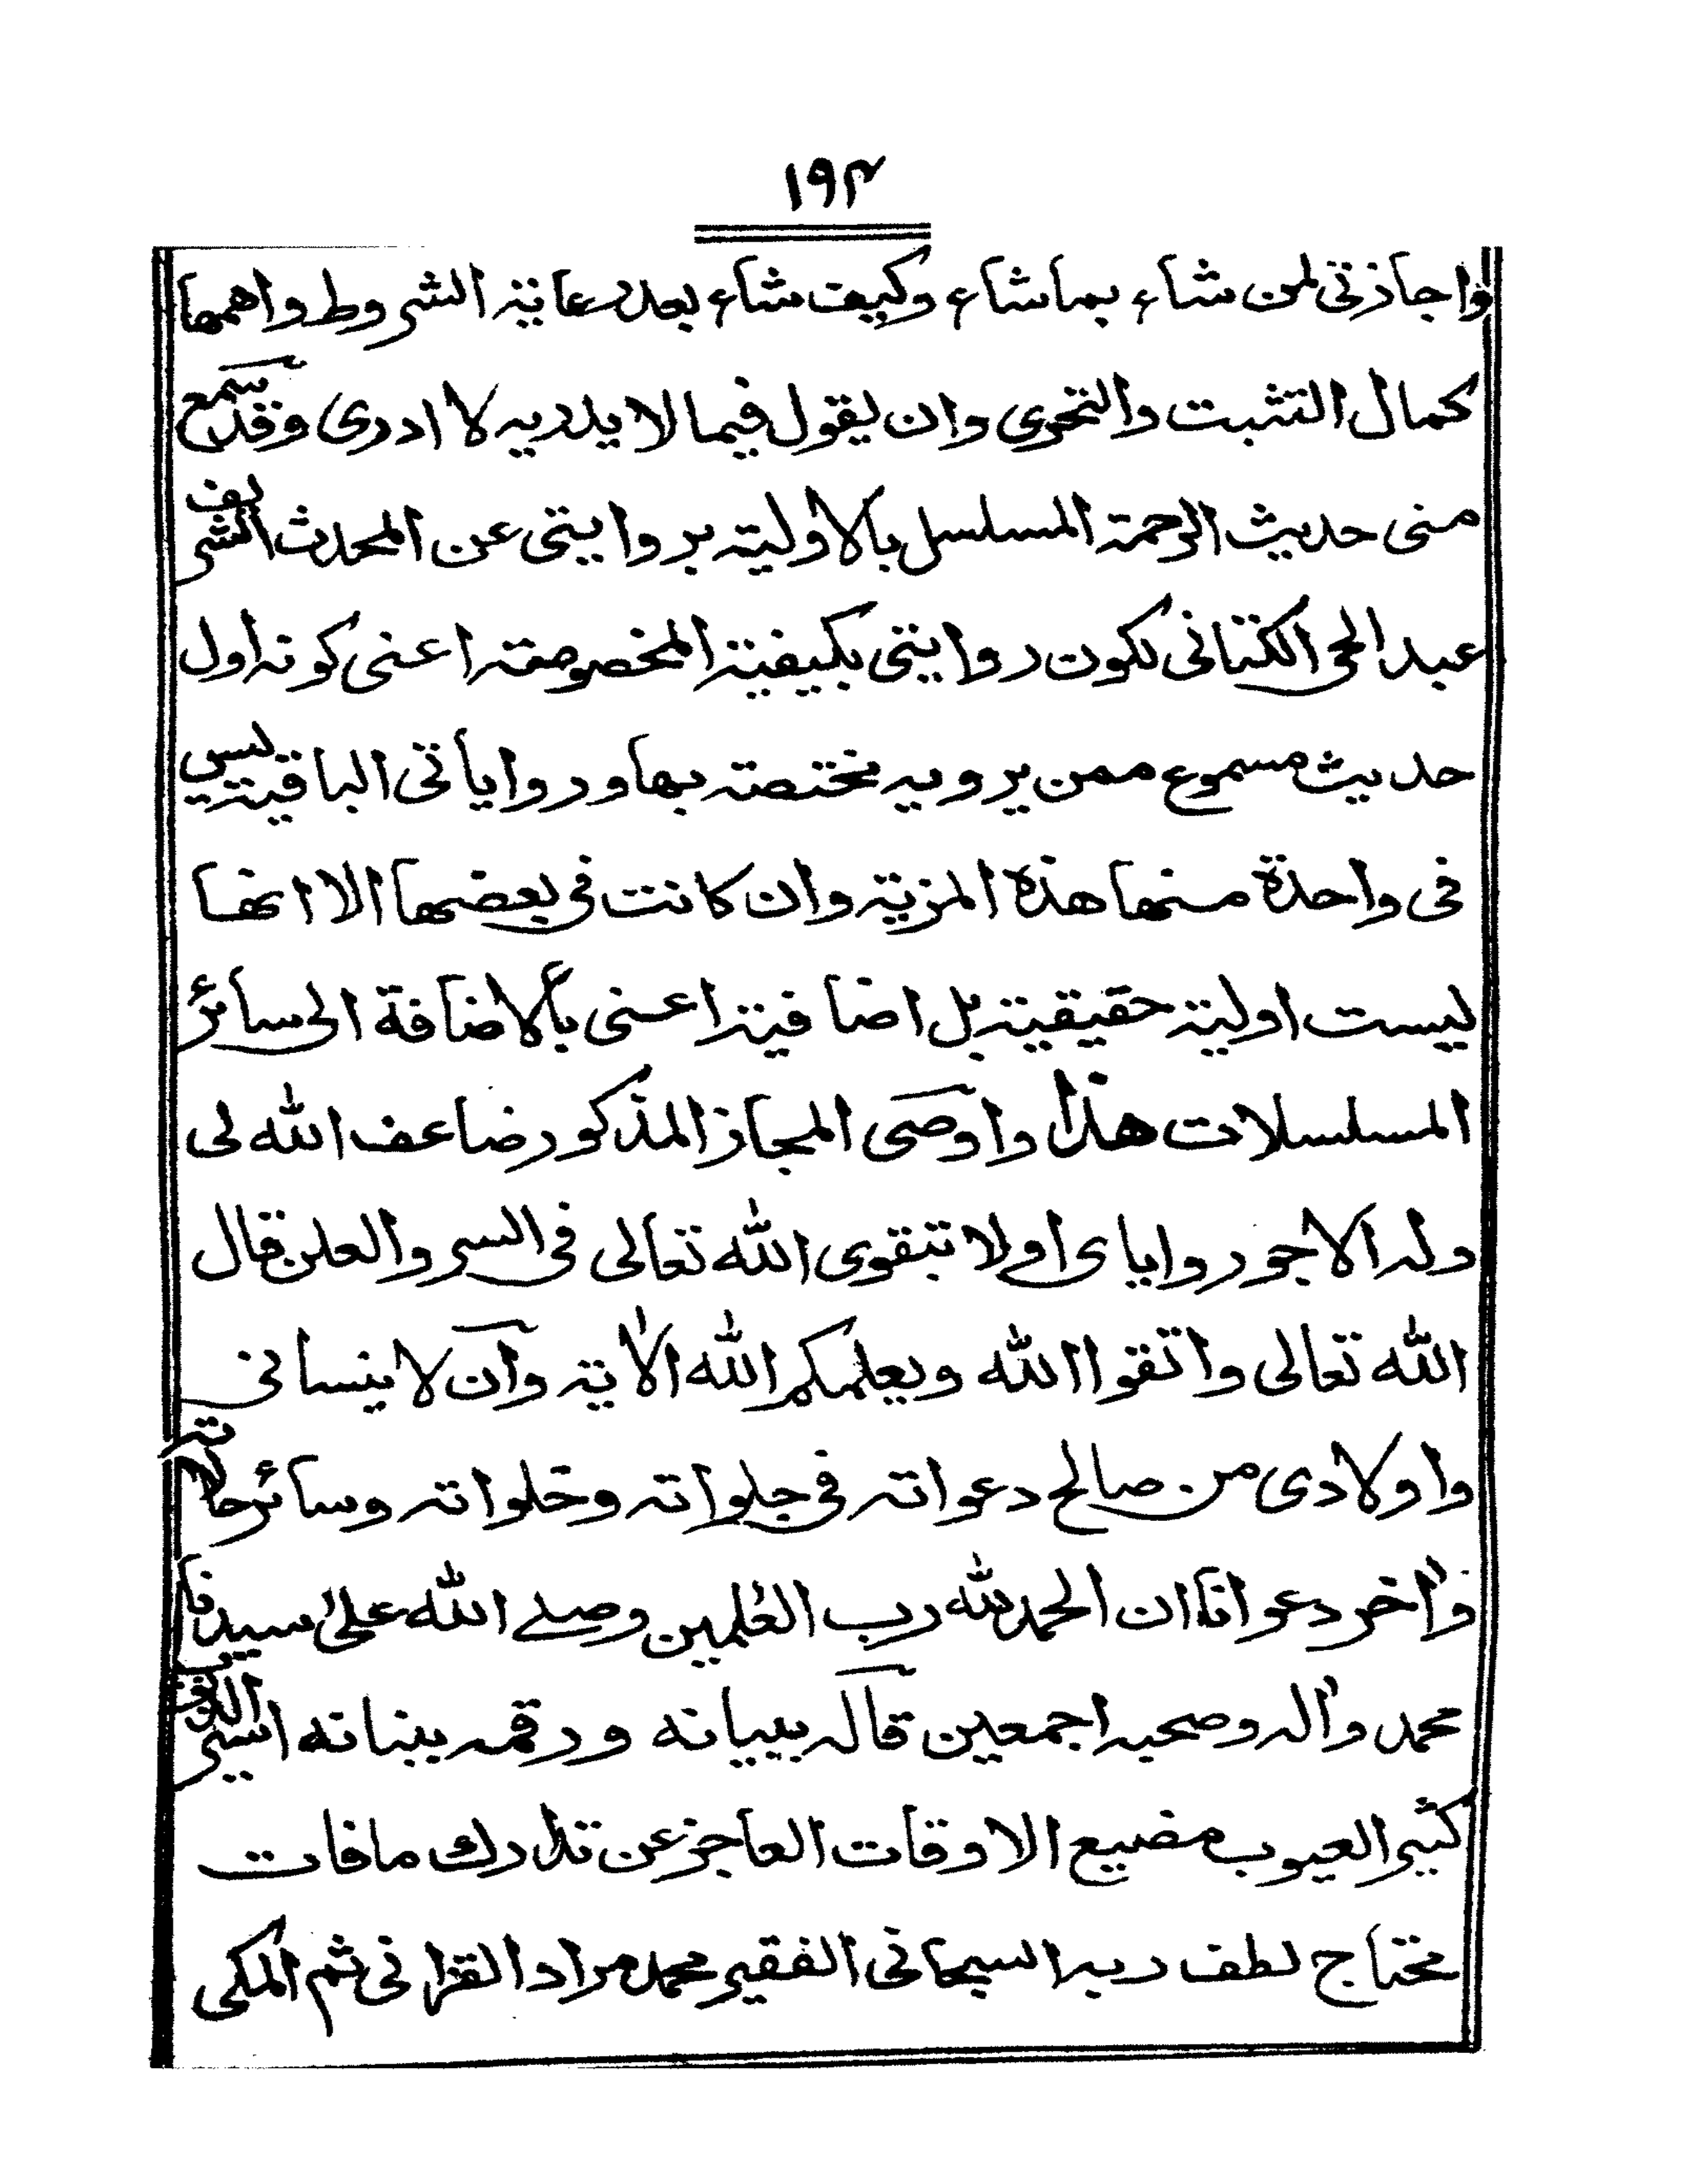 ١٩٣
واجازتى لمن شاء بما شاء وكيف شاء بعد رعاية الشروط واهمها
كمال التثبت والتحرى وان يقول فيما لا يدريه لا ادرى وقد سمع
منى حديث الرحمة المسلسل بالاولية بروايتى عن المحدث الشريف
عبد الحى الكتانى لكون روايتى بكيفية المخصوصة اعنى كونه اول
حديث مسموع ممن يرويه مختصة بها وروايأتى الباقية ليس
فى واحدة منها هذه المزية وان كانت فى بعضها الا انها
ليست اولية حقيقية بل اضافية اعنى بالاضافة الى سائر
المسلسلات هذا واوصى المجاز المذكور ضاعف الله لى
وله الاجور واياى اولا بتقوى الله تعالى فى السر والعلن قال
الله تعالى واتقوا الله ويعلمكم الله الاية وان لا ينسانى
واولادى من صالح دعواته فى جلواته وخلواته وسائر حالاته
واخر دعوانا ان الحمد لله رب العٰلمين وصلے الله علىٰ سيدنا
محمد واٰله وصحبه اجمعين قاله ببيانه ورقمه ببنانه اسير الذنوب
كثير العيوب مضيع الاوقات العاجز عن تدارك مافات
محتاج لطف ربه السبحانى الفقير محمد مراد القزانى ثم المكى